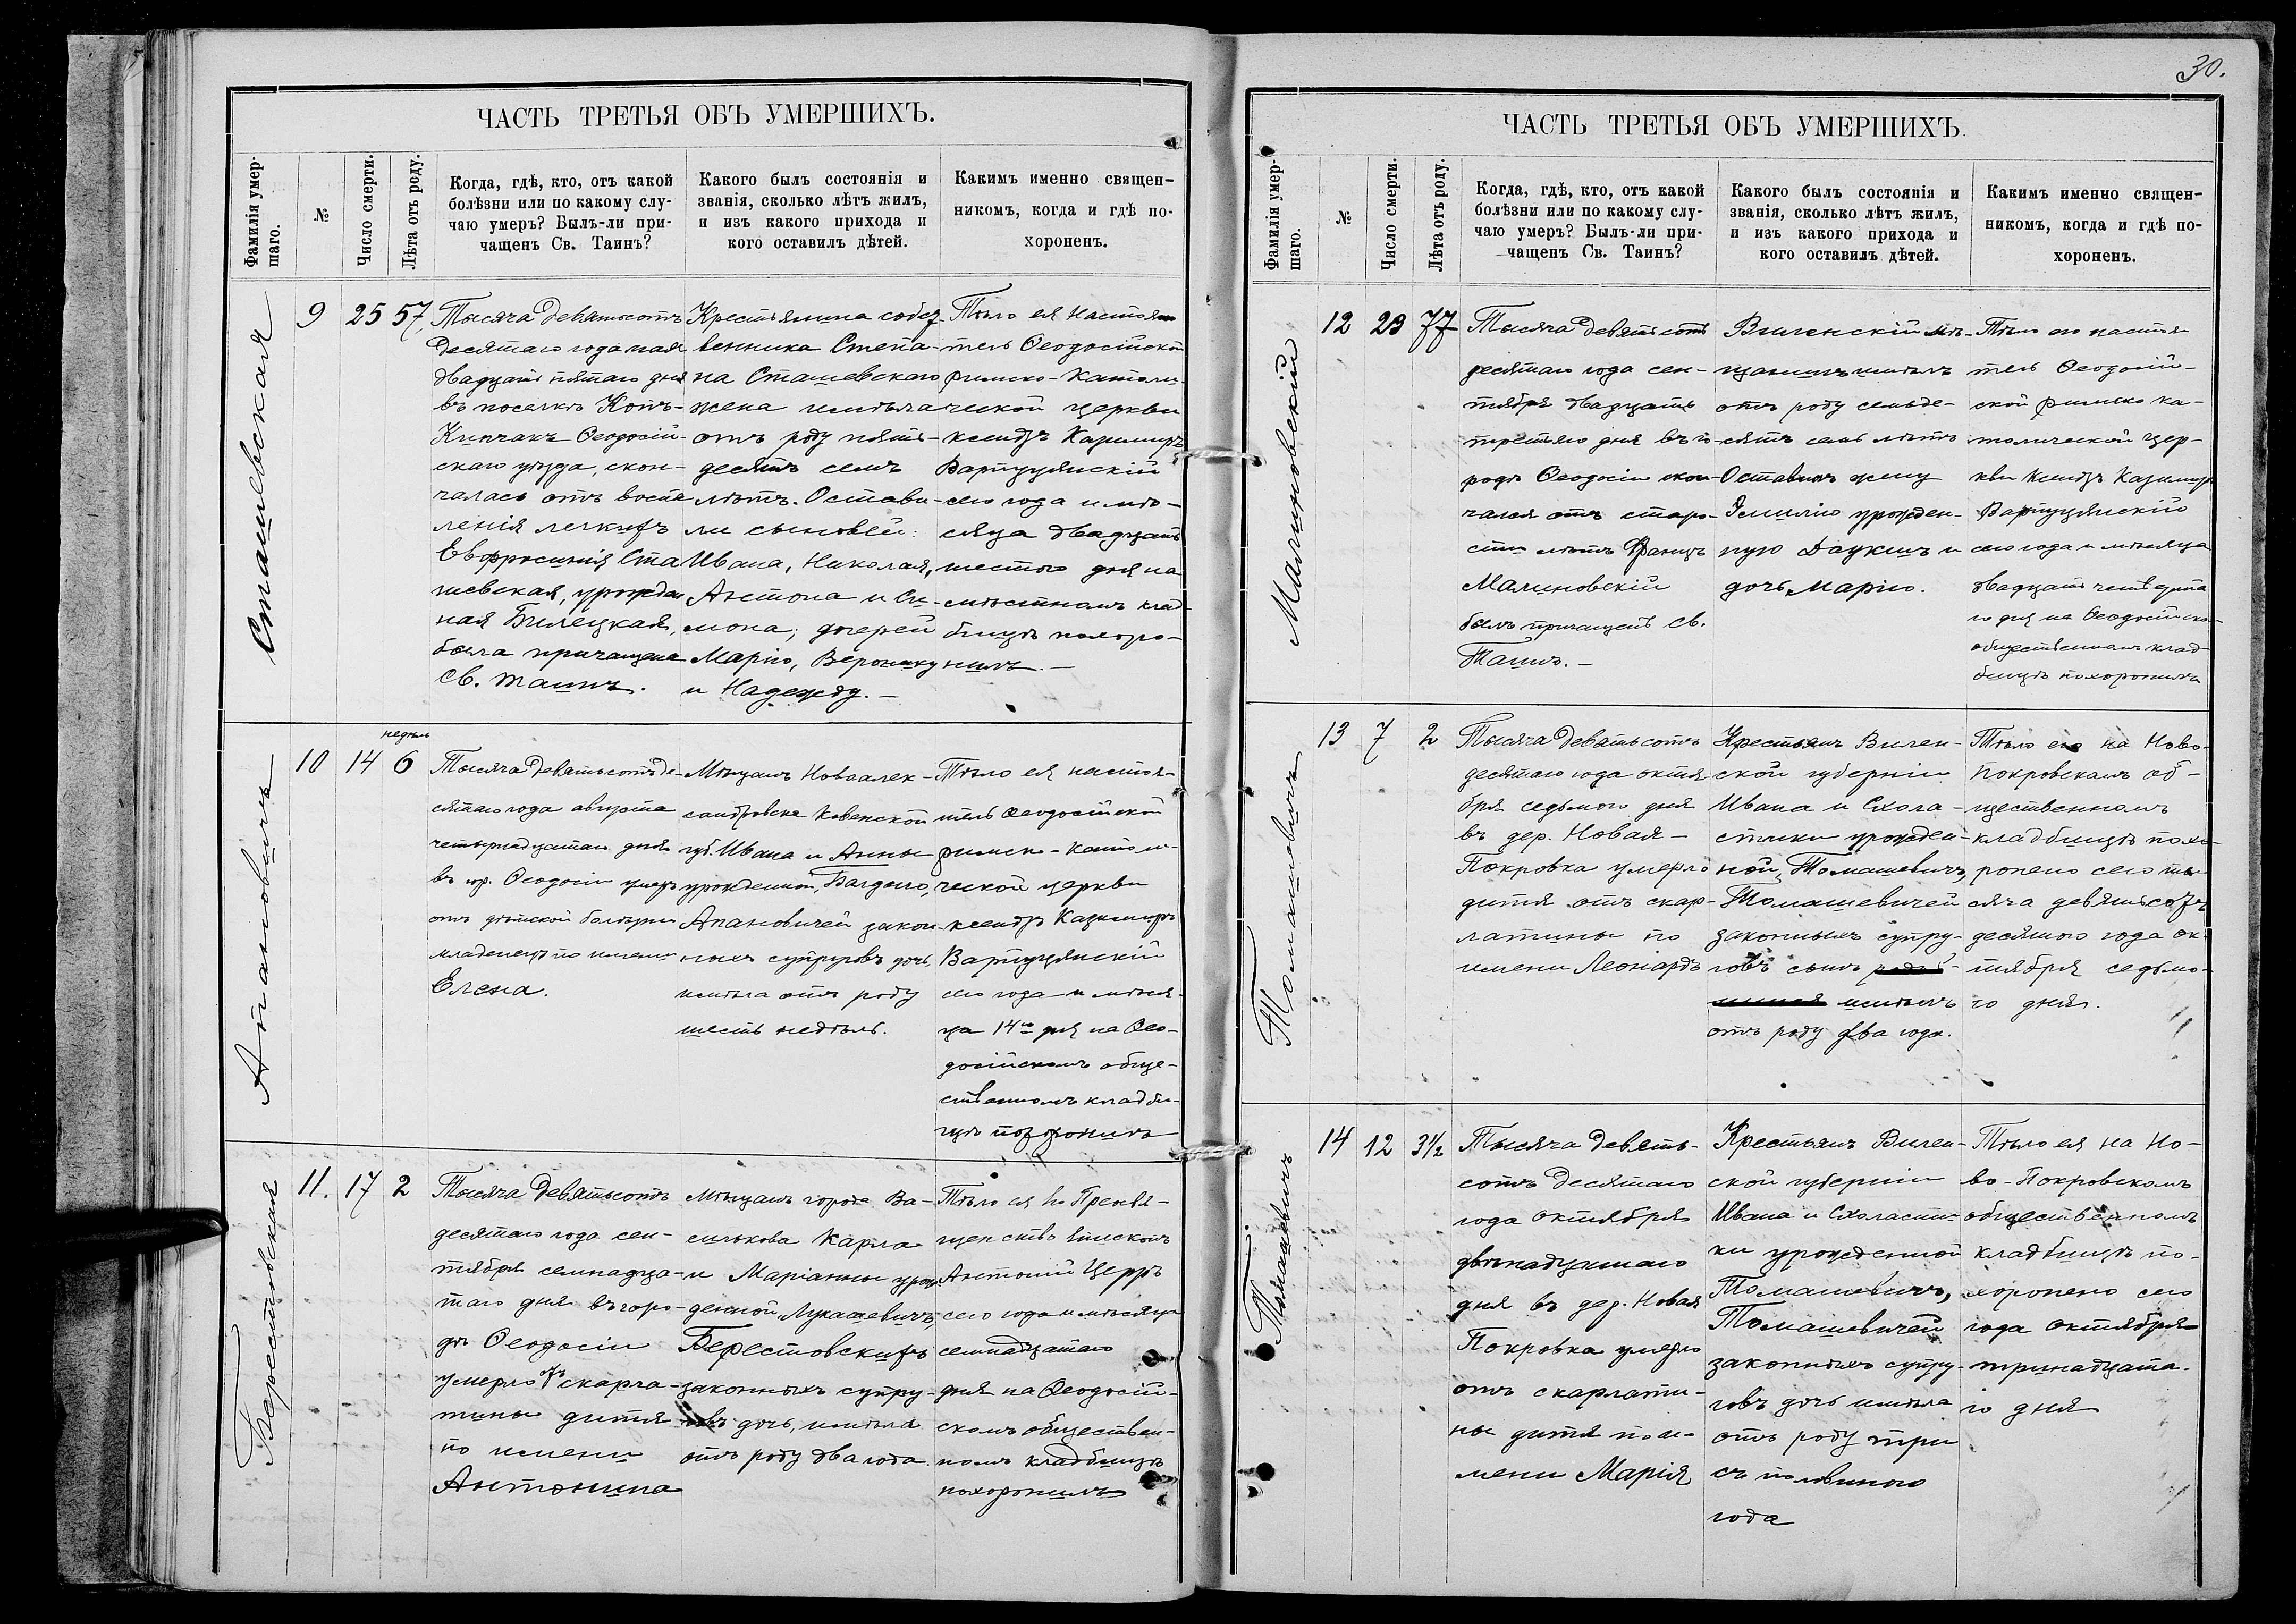 30.
ЧАСТЬ ТРЕТЬЯ ОБЪ УМЕРШИХЪ.
Фамилія умер-
шаго.
№
Число смерти.
Лѣта отъ роду.
Когда, гдѣ, кто, отъ какой
болѣзни или по какому слу-
чаю умеръ? Былъ-ли при-
чащенъ Св. Таинъ?
Какого былъ состоянія и
званія, сколько лѣтъ жилъ,
и изъ какого прихода и
кого оставилъ дѣтей.
Какимъ именно священ-
никомъ, когда и гдѣ по-
хороненъ.
Сташевская
9
25
57
Тысяча девятьсотъ
десятаго года мая
двадцать пятаго дня
въ поселкѣ Котъ-
Кипчакъ Ѳеодосій-
скаго уѣзда, скон-
чалась отъ воспа
ленія легкихъ
Евфросинія Ста
шевская, урожден
ная Билецкая,
была причащена
Св. таинъ.
Крестьянина собст
венника Степа-
на Сташевскаго
жена имѣла
отъ роду пять-
десятъ семь
лѣтъ. Остави-
ли сыновей:
Ивана, Николая,
Антона и Си-
мона; дочерей
Марію, Веронику
и Надежду. —
Тѣло ея настоя
тель Ѳеодосійской
Римско-Католи-
ческой церкви
ксендзъ Казимиръ
Вартуцянскій
сего года и мѣ-
сяца двадцать
шестого дня на
мѣстномъ клад-
бищѣ похоро-
нилъ. —
Апановичъ
10
14
недѣль
6
Тысяча девятьсотъ де-
сятаго года августа
четырнадцатаго дня
въ гор. Ѳеодосіи умеръ
отъ дѣтской болѣзни
младенецъ по имени
Елена.
Мѣщанъ Новоалек-
сандровска Ковенской
губ. Ивана и Анны
урожденной
Апановичей закон-
ныхъ супруговъ дочь,
имѣла отъ роду
шесть недѣль.
Тѣло ея настоя-
тель Ѳеодосійской
римско-католи-
ческой церкви
ксендзъ Казимиръ
Вартуцянскій
сего года и мѣся-
ца 14го дня на Ѳео-
досійскомъ обще-
ственномъ кладби-
щѣ похоронилъ
Берестовская
11.
17
2
Тысяча девятьсотъ
десятаго года сен-
тября семнадца-
таго дня въ горо-
дѣ Ѳеодосіи
умерло отъ скарла-
тины дитя
по имени
Антонина
мѣщанъ города Ва-
силькова Карла
и Маріанны урож
денной Лукашевичъ,
Берестовскихъ
законныхъ супру-
говъ дочь, имѣла
отъ роду два года.
Тѣло ея
Антоній Церръ
сего года и мѣсяца
семнадцатаго
дня на Ѳеодосій-
скомъ обществен-
номъ кладбищѣ
похоронилъ
ЧАСТЬ ТРЕТЬЯ ОБЪ УМЕРШИХЪ.
Фамилія умер-
шаго.
№
Число смерти.
Лѣта отъ роду.
Когда, гдѣ, кто, отъ какой
болѣзни или по какому слу-
чаю умеръ? Былъ-ли при-
чащенъ Св. Таинъ?
Какого былъ состоянія и
званія, сколько лѣтъ жилъ,
и изъ какого прихода и
кого оставилъ дѣтей.
Какимъ именно священ-
никомъ, когда и гдѣ по-
хороненъ.
Малиновскій
12
23
77
Тысяча девятьсотъ
десятаго года сен-
тября двадцать
третьяго дня въ го
родѣ Ѳеодосіи скон-
чался отъ старо-
сти лѣтъ Францъ
Малиновскій
былъ причащенъ Св.
Таинъ. —
Виленскій мѣ-
щанинъ имѣлъ
отъ роду семьде-
сятъ семь лѣтъ
Оставилъ жену
Эмилію урожден-
ную Даукшъ и
дочь Марію.
Тѣло его настоя
тель Ѳеодосій-
ской римско ка-
толической цер-
кви Ксендзъ Казимиръ
Вартуцянскій
сего года и мѣсяца
двадцать четверта
го дня на Ѳеодосійско
общественномъ клад-
бищѣ похоронилъ
Томашевичъ
13
7
2
Тысяча девятьсотъ
десятаго года октя
бря седьмого дня
въ дер. Новая-
Покровка умерло
дитя отъ скар-
латины по
имени Леонардъ
Крестьянъ Вилен-
ской губерніи
Ивана и Схола-
стики урожден-
ной Томашевичъ,
Томашевичей
законныхъ супру-
говъ сынъ
имѣлъ
отъ роду два года.
Тѣло его на Ново-
Покровскомъ об-
щественномъ
кладбищѣ похо-
ронено сего ты-
сяча девятьсотъ
десятого года ок-
тября седьмо-
го дня.
Томашевичъ
14
12
3½
Тысяча девять-
сотъ десятаго
года октября
двѣнадцатаго
дня въ дер. Новая
Покровка умерло
отъ скарлати-
ны дитя по и-
мени Марія
Крестьянъ Вилен-
ской губерніи
Ивана и Схоласти-
ки урожденной
Томашевичъ,
Томашевичей
законныхъ супру-
говъ дочь имѣла
отъ роду три
съ половиною
года
Тѣло ея на Но-
во-Покровскомъ
общественномъ
кладбищѣ по-
хоронено сего
года октября
тринадцата-
го дня